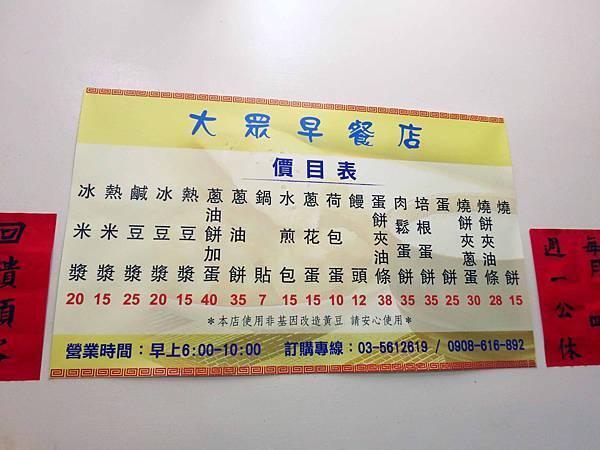 大眾早餐店
價目表
冰米漿 20
熱米漿 15
鹹豆漿 25
冰豆漿 20
熱豆漿 15
蔥油餅加蛋 40
蔥油餅 35
鍋貼 7
水煎包 15
蔥花蛋 15
荷包蛋 10
饅頭 12
蛋餅夾油條 38
肉鬆蛋餅 35
培根蛋餅 35
蛋餅 25
燒餅夾蔥蛋 30
燒餅夾油條 28
燒餅 15
＊本店使用非基因改造黃豆 請安心使用＊
營業時間：早上6:00-10:00 訂購專線：03-5612619 / 0908-616-892
回饋顧客
每月四
週一公休